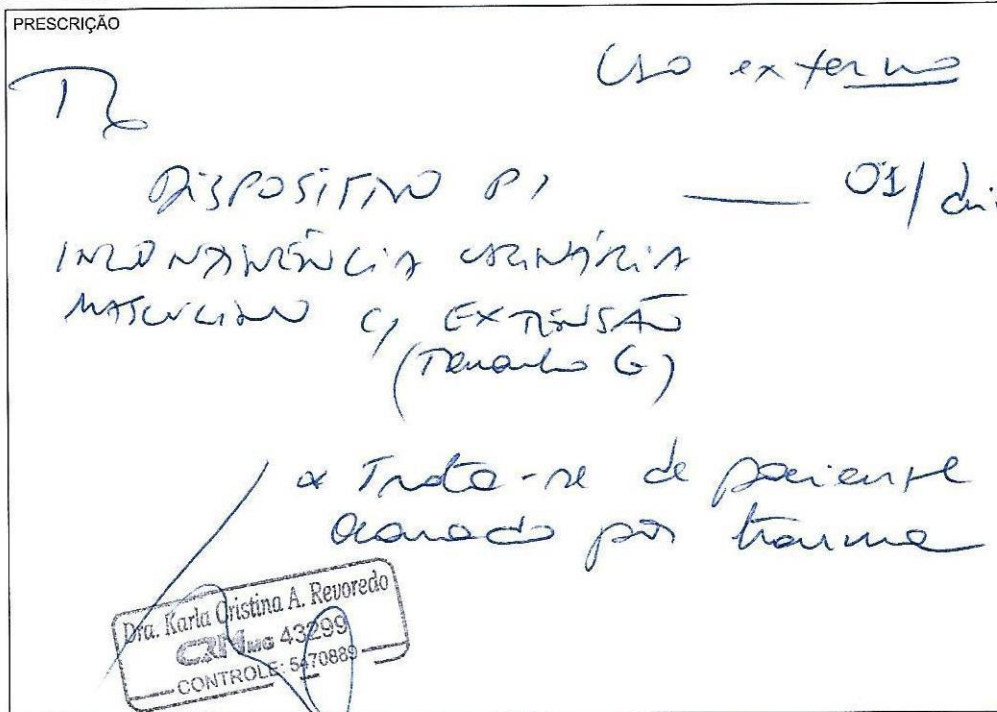 PRESCRIÇÃO
Uso externo
DISPOSITIVO P/ — 01/dia
INCONTINÊNCIA URINÁRIA
MASCULINO C/ EXTENSÃO
(Tamanho G)
* Trata-se de paciente
acamado por trauma
Dra. Karla Cristina A. Revoredo
CRMMG 43299
CONTROLE: 5470889